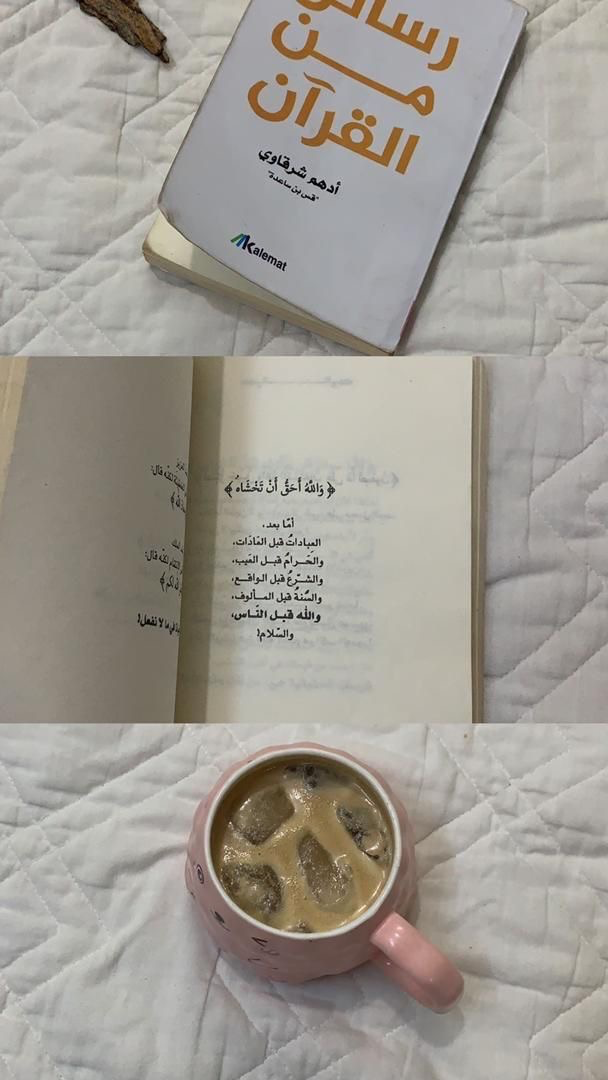 رسائل
من
القرآن
أدهم شرقاوي
"قس بن ساعدة"
Kalemat
﴿وَاللَّهُ أَحَقُّ أَنْ تَخْشَاهُ﴾
أمّا بعد،
العِباداتُ قبل العَادَات،
والحَـرامُ قبـل العَيب،
والشـرعُ قبل الواقع،
والسُّنةُ قبل المـألوف،
والله قبـل النّاس،
والسّلام!
قال:
﴾
قال:
لكم﴾
ما لا تفعل!